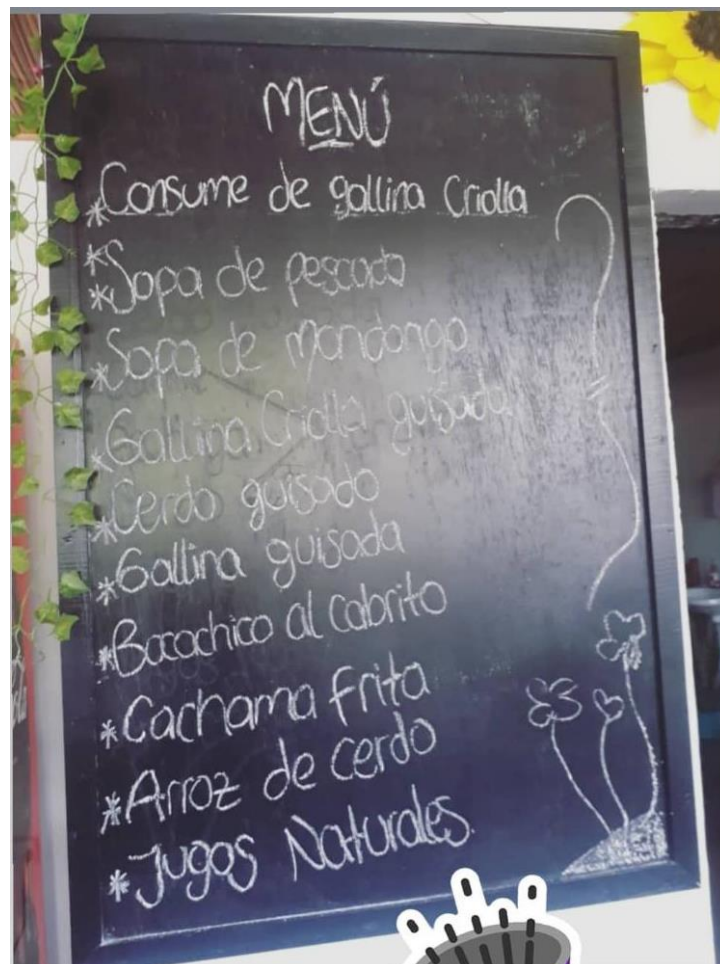 MENÚ
*Consume de gallina Criolla
*
*Sopa de pescado
*Sopa de mondongo
*Gallina Criolla guisada
*Cerdo guisado
*Gallina guisada
*Bocachico al Cabrito
*Cachama frita
*Arroz de cerdo
*Jugos Naturales.